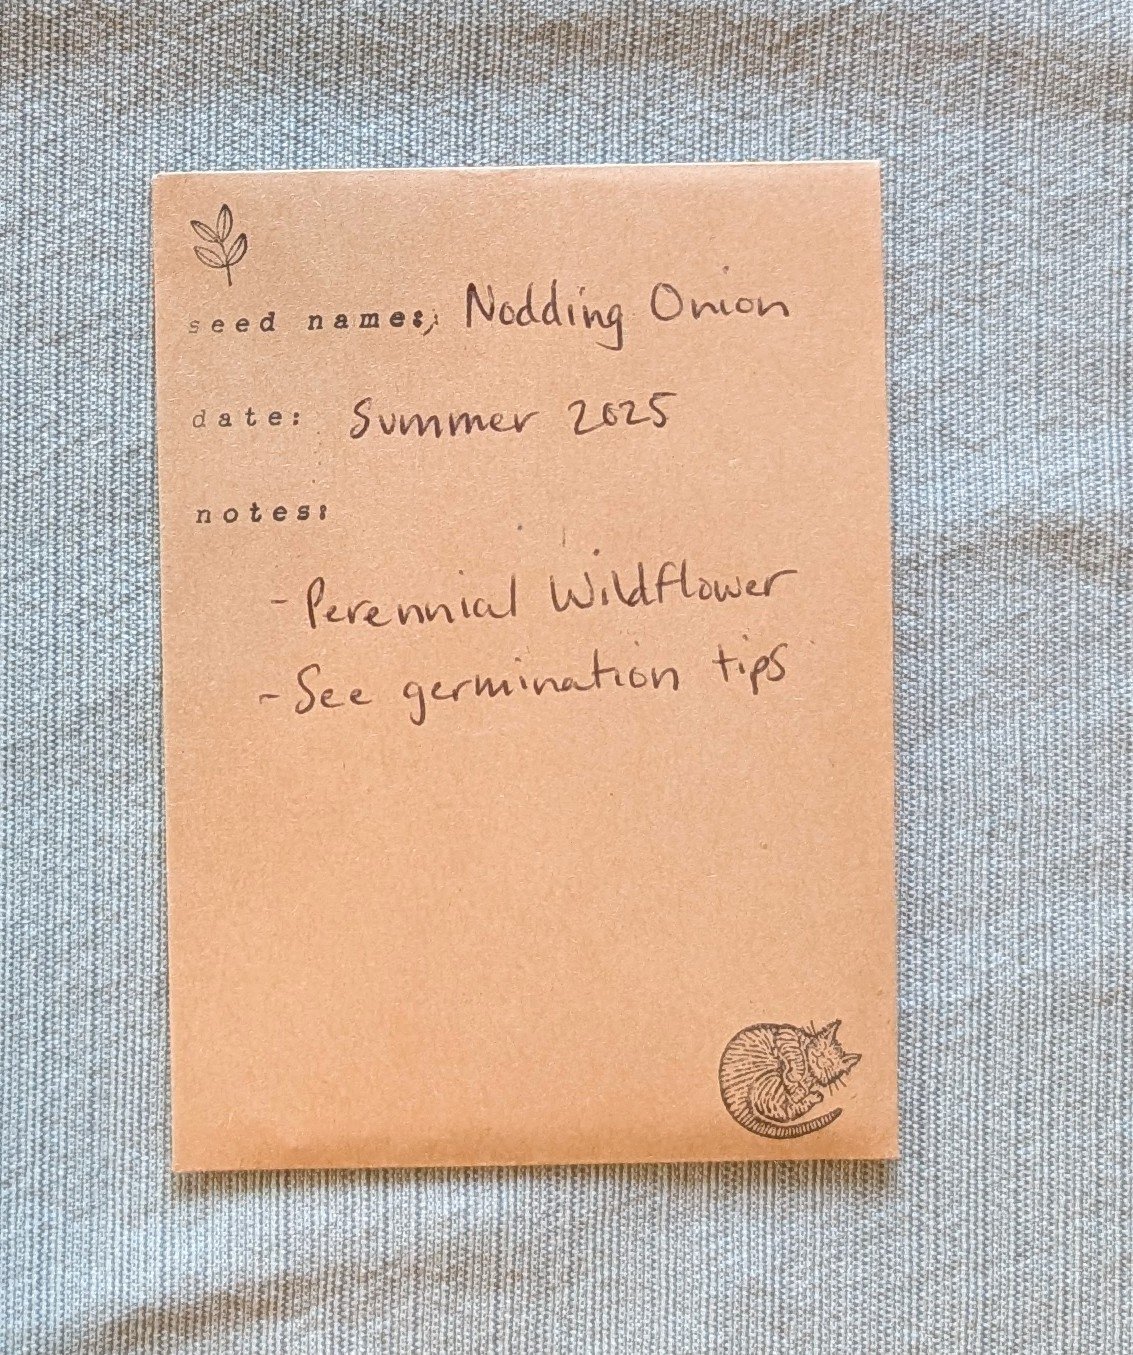 seed name: Nodding Onion
date: Summer 2025
notes:
- Perennial Wildflower
- See germination tips